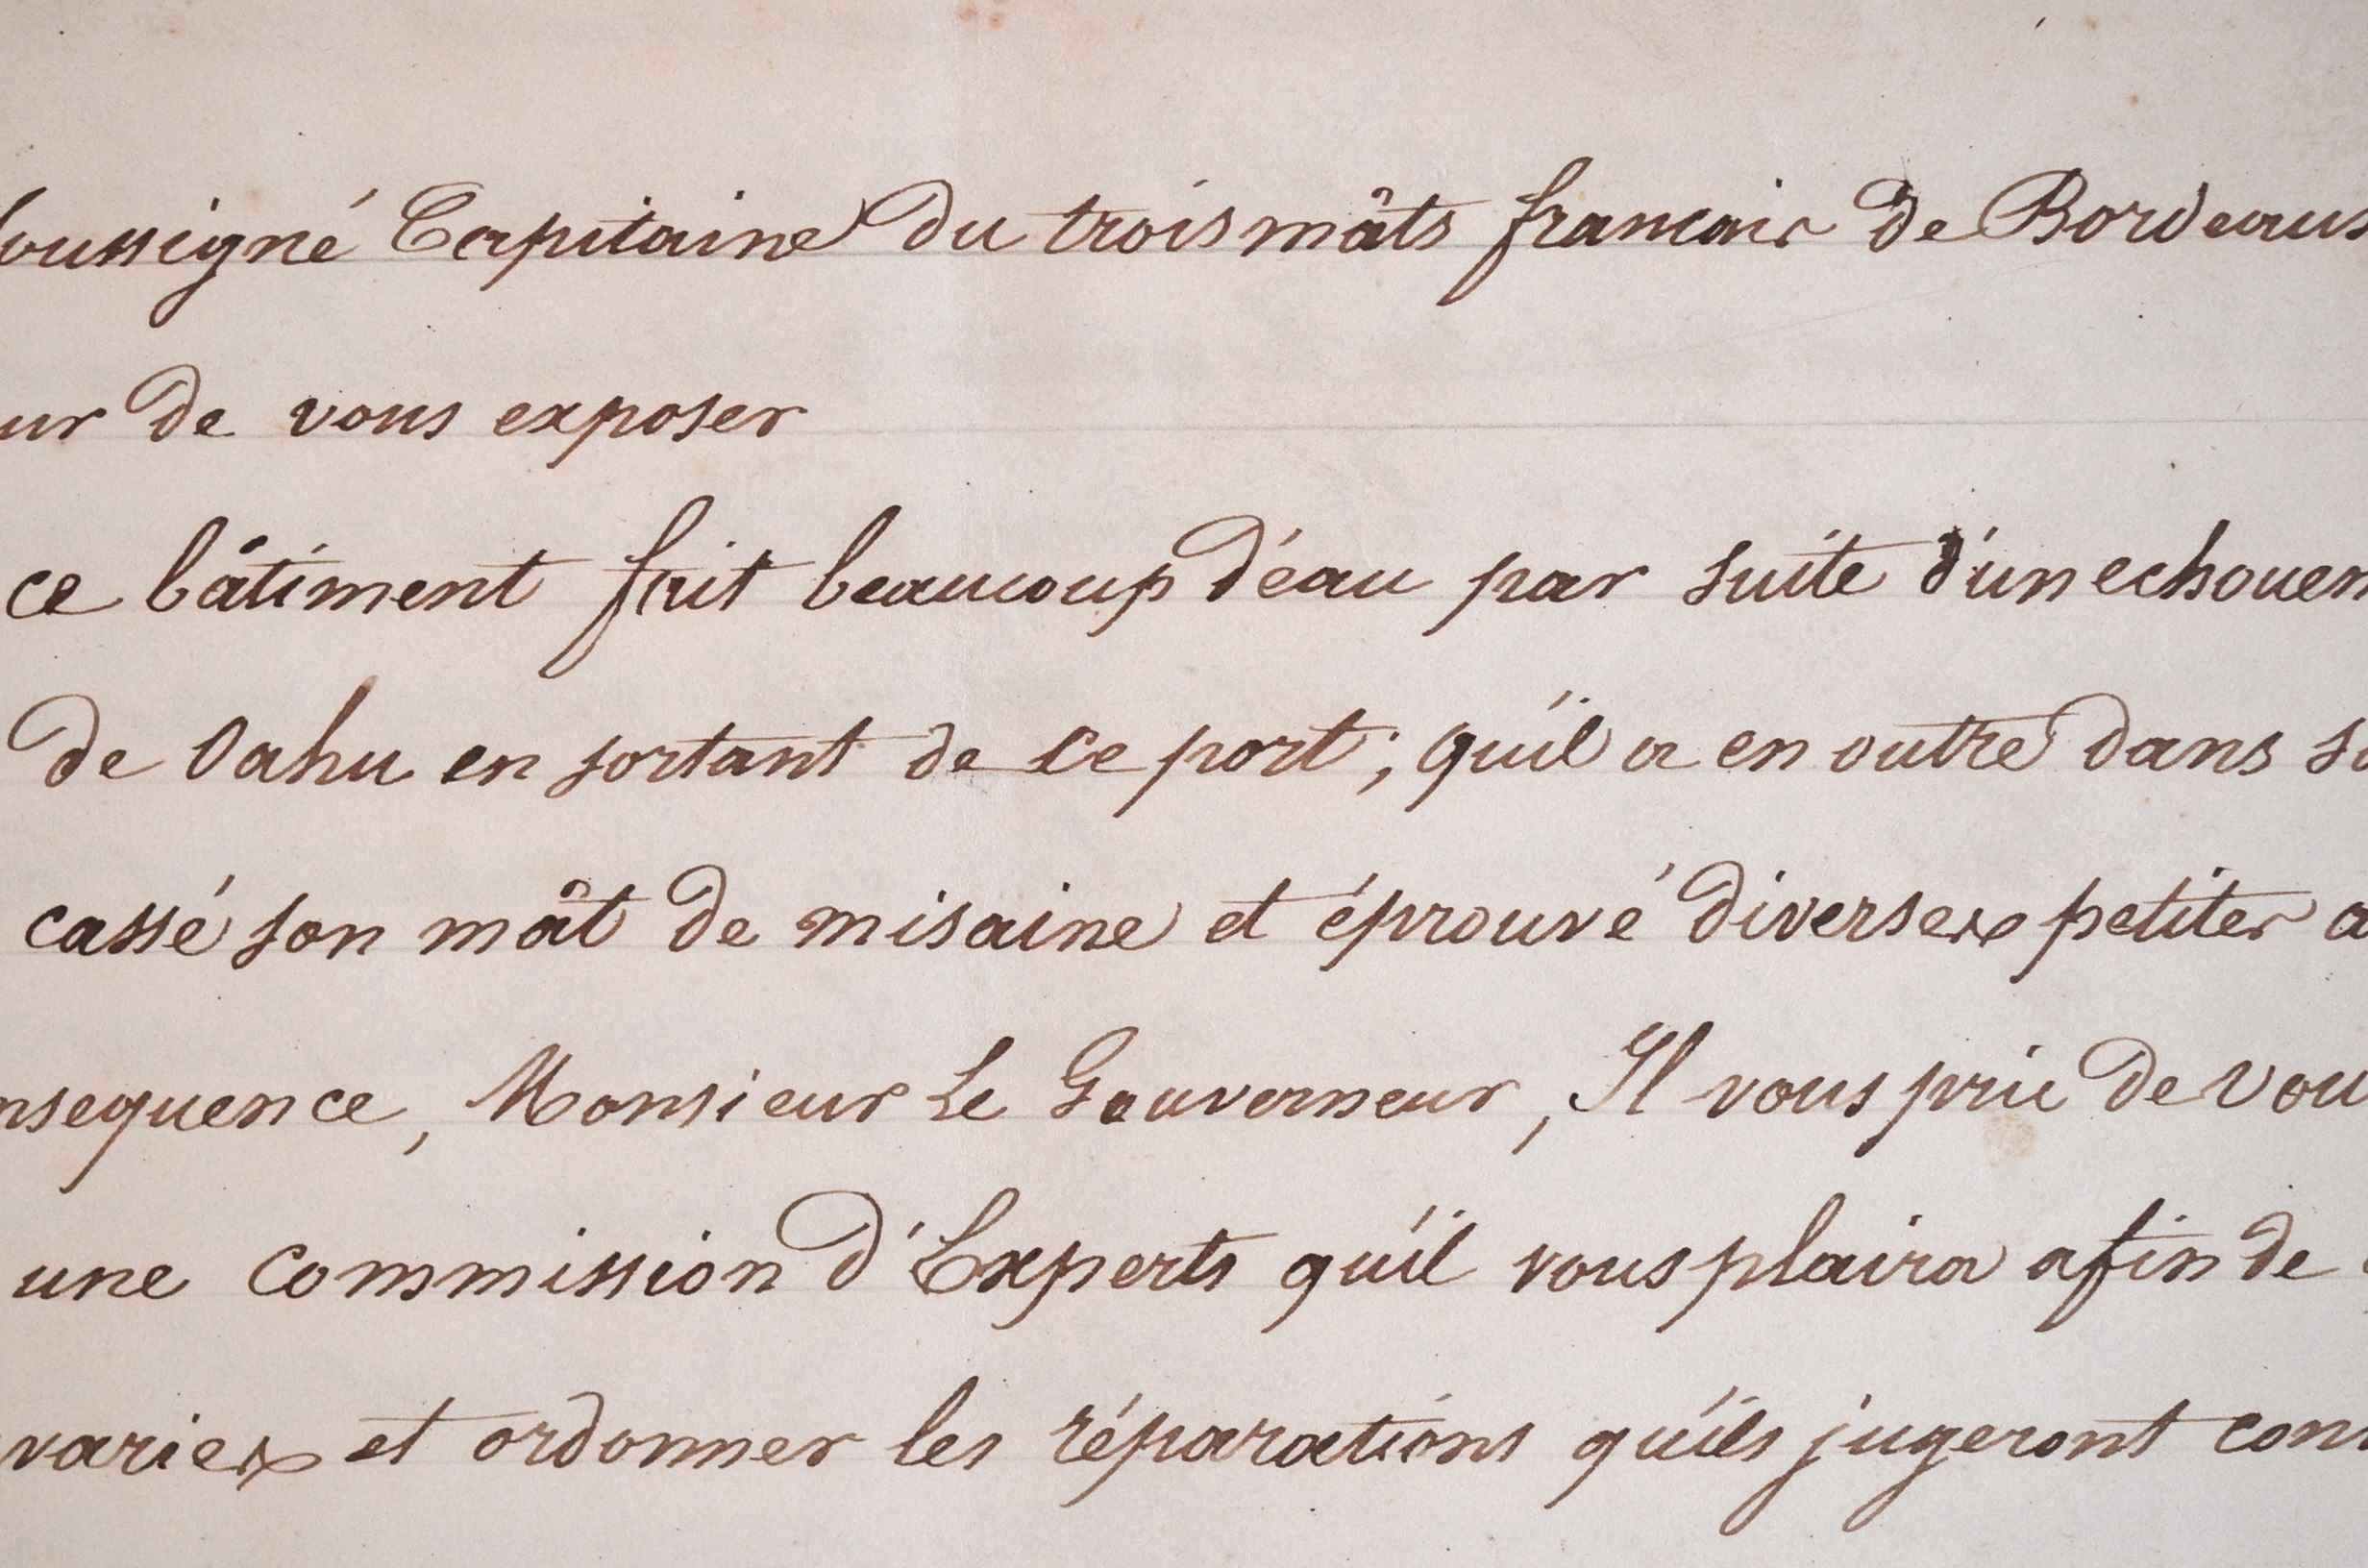 soussigné Capitaine du trois mâts francais de Bordeaux
ur de vous exposer
ce bâtiment fait beaucoup d'eau par suite d'un echouem
de Oahu en sortant de ce port; qu'il a en outre dans sa
cassé son mât de misaine et éprouvé diverses petites a
nsequence, Monsieur Le Gouverneur, Il vous prie de vou
une commission d'Experts qu'il vous plaira afin de
varies et ordonner les réparations qu'ils jugeront conv